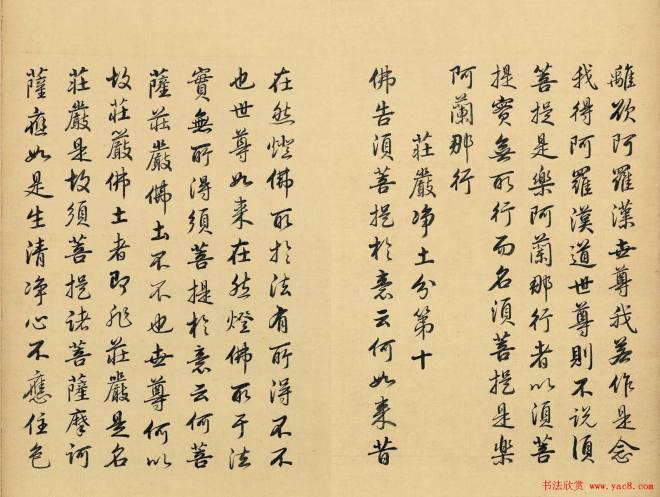 離欲阿羅漢世尊我若作是念
我得阿羅漢道世尊則不說須
菩提是樂阿蘭那行者以須菩
提實無所行而名須菩提是樂
阿蘭那行
莊嚴净土分第十
佛告須菩提於意云何如來昔
在然燈佛所於法有所得不不
也世尊如來在然燈佛所于法
實無所得須菩提於意云何菩
薩莊嚴佛土不不也世尊何以
故莊嚴佛土者即非莊嚴是名
莊嚴是故須菩提諸菩薩摩訶
薩應如是生清净心不應住色
书法欣赏 www.yac8.com